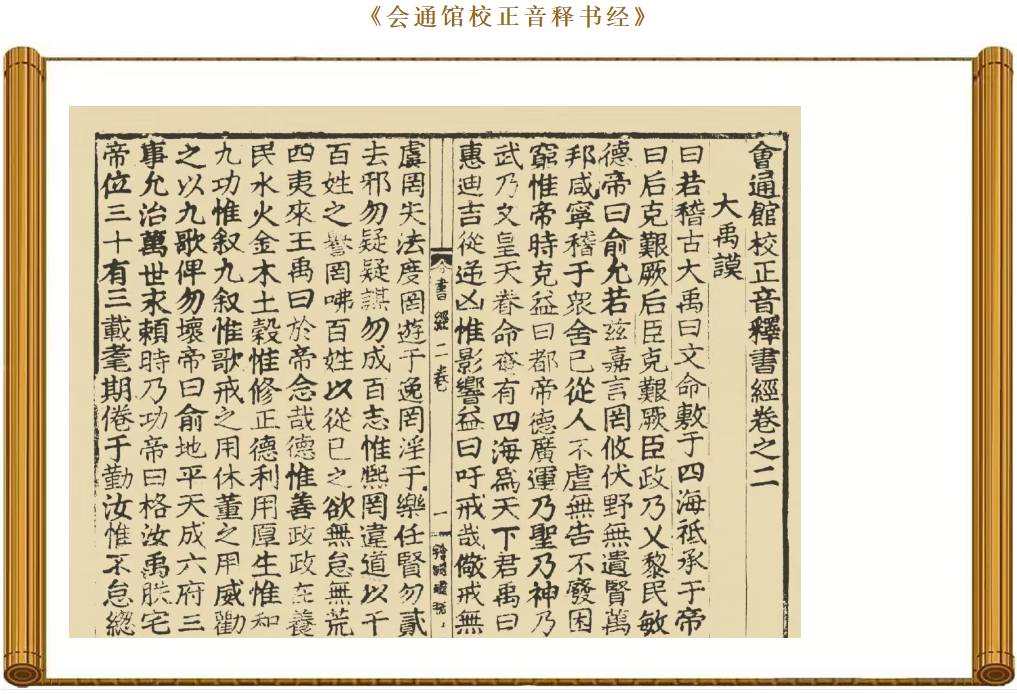 《会通馆校正音释书经》
會通館校正音釋書經卷之二
大禹謨
曰若稽古大禹曰文命敷于四海祗承于帝
曰后克艱厥后臣克艱厥臣政乃乂黎民敏
德帝曰俞允若茲嘉言罔攸伏野無遺賢萬
邦咸寧稽于衆舍己從人不虐無告不廢困
窮惟帝時克益曰都帝德廣運乃聖乃神乃
武乃文皇天眷命奄有四海爲天下君禹曰
惠迪吉從逆凶惟影響益曰吁戒哉儆戒無
書經二卷
一
虞罔失法度罔遊于逸罔淫于樂任賢勿貳
去邪勿疑疑謀勿成百志惟熙罔違道以干
百姓之譽罔咈百姓以從己之欲無怠無荒
四夷來王禹曰於帝念哉德惟善政政在養
民水火金木土穀惟修正德利用厚生惟和
九功惟叙九叙惟歌戒之用休董之用威勸
之以九歌俾勿壞帝曰俞地平天成六府三
事允治萬世永賴時乃功帝曰格汝禹朕宅
帝位三十有三載耄期倦于勤汝惟不怠總